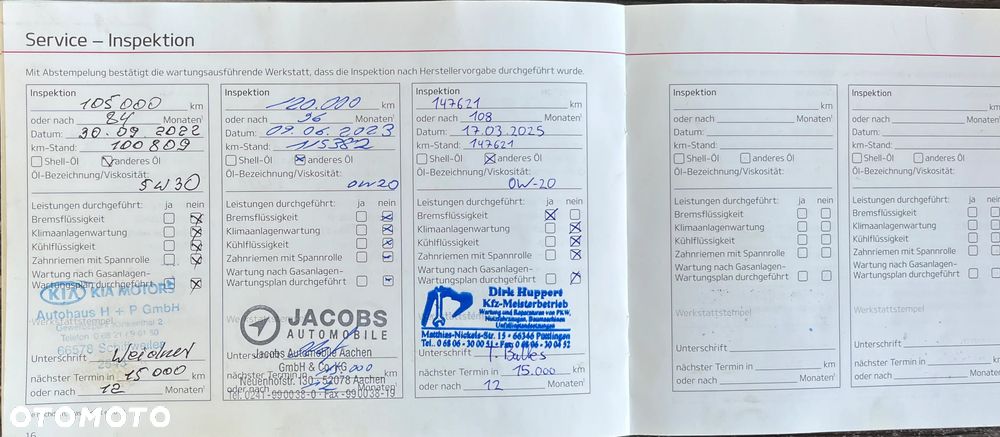 Service – Inspektion
Mit Abstempelung bestätigt die wartungsausführende Werkstatt, dass die Inspektion nach Herstellervorgabe durchgeführt wurde.
Inspektion
105000 km
oder nach 84 Monaten¹
Datum: 30.09.2022
km-Stand: 100809
Shell-Öl anderes Öl
Öl-Bezeichnung/Viskosität:
5W30
Leistungen durchgeführt: ja nein
Bremsflüssigkeit
Klimaanlagenwartung
Kühlflüssigkeit
Zahnriemen mit Spannrolle
Wartung nach Gasanlagen-
Wartungsplan durchgeführt
KIA KIA MOTORS
Autohaus H + P GmbH
66578 Schiffweiler
Werkstattstempel
Unterschrift Weidner
nächster Termin in 15000 km
oder nach 12 Monaten¹
Inspektion
120.000 km
oder nach 96 Monaten¹
Datum: 09.06.2023
km-Stand: 115382
Shell-Öl anderes Öl
Öl-Bezeichnung/Viskosität:
0W20
Leistungen durchgeführt: ja nein
Bremsflüssigkeit
Klimaanlagenwartung
Kühlflüssigkeit
Zahnriemen mit Spannrolle
Wartung nach Gasanlagen-
Wartungsplan durchgeführt
JACOBS
AUTOMOBILE
Unterschrift
Jacobs Automobile Aachen
GmbH & Co. KG
Neuenhofstr. 130 · 52078 Aachen
Tel. 0241-990038-0 · Fax -990038-19
nächster Termin in km
oder nach Monaten¹
Inspektion
147621 km
oder nach 108 Monaten¹
Datum: 17.03.2025
km-Stand: 147621
Shell-Öl anderes Öl
Öl-Bezeichnung/Viskosität:
0W-20
Leistungen durchgeführt: ja nein
Bremsflüssigkeit
Klimaanlagenwartung
Kühlflüssigkeit
Zahnriemen mit Spannrolle
Wartung nach Gasanlagen-
Wartungsplan durchgeführt
Dirk Huppert
Kfz-Meisterbetrieb
Wartung und Reparaturen von PKW,
Nutzfahrzeugen, Baumaschinen
Unfallinstandsetzungen
Matthias-Nickels-Str. 15 · 66346 Püttlingen
Tel. 0 68 06 - 30 00 51 · Fax 0 68 06 - 30 04 52
Unterschrift
nächster Termin in 15.000 km
oder nach 12 Monaten¹
Inspektion
km
oder nach Monaten¹
Datum:
km-Stand:
Shell-Öl anderes Öl
Öl-Bezeichnung/Viskosität:
Leistungen durchgeführt: ja nein
Bremsflüssigkeit
Klimaanlagenwartung
Kühlflüssigkeit
Zahnriemen mit Spannrolle
Wartung nach Gasanlagen-
Wartungsplan durchgeführt
Werkstattstempel
Unterschrift
nächster Termin in km
oder nach Monaten¹
Inspektion
oder nach
Datum:
km-Stand:
Shell-Öl anderes Öl
Öl-Bezeichnung/Viskosität:
Leistungen durchgeführt: ja
Bremsflüssigkeit
Klimaanlagenwartung
Kühlflüssigkeit
Zahnriemen mit Spannrolle
Wartung nach Gasanlagen-
Wartungsplan durchgeführt
Werkstattstempel
Unterschrift
nächster Termin in
oder nach
16
OTOMOTO